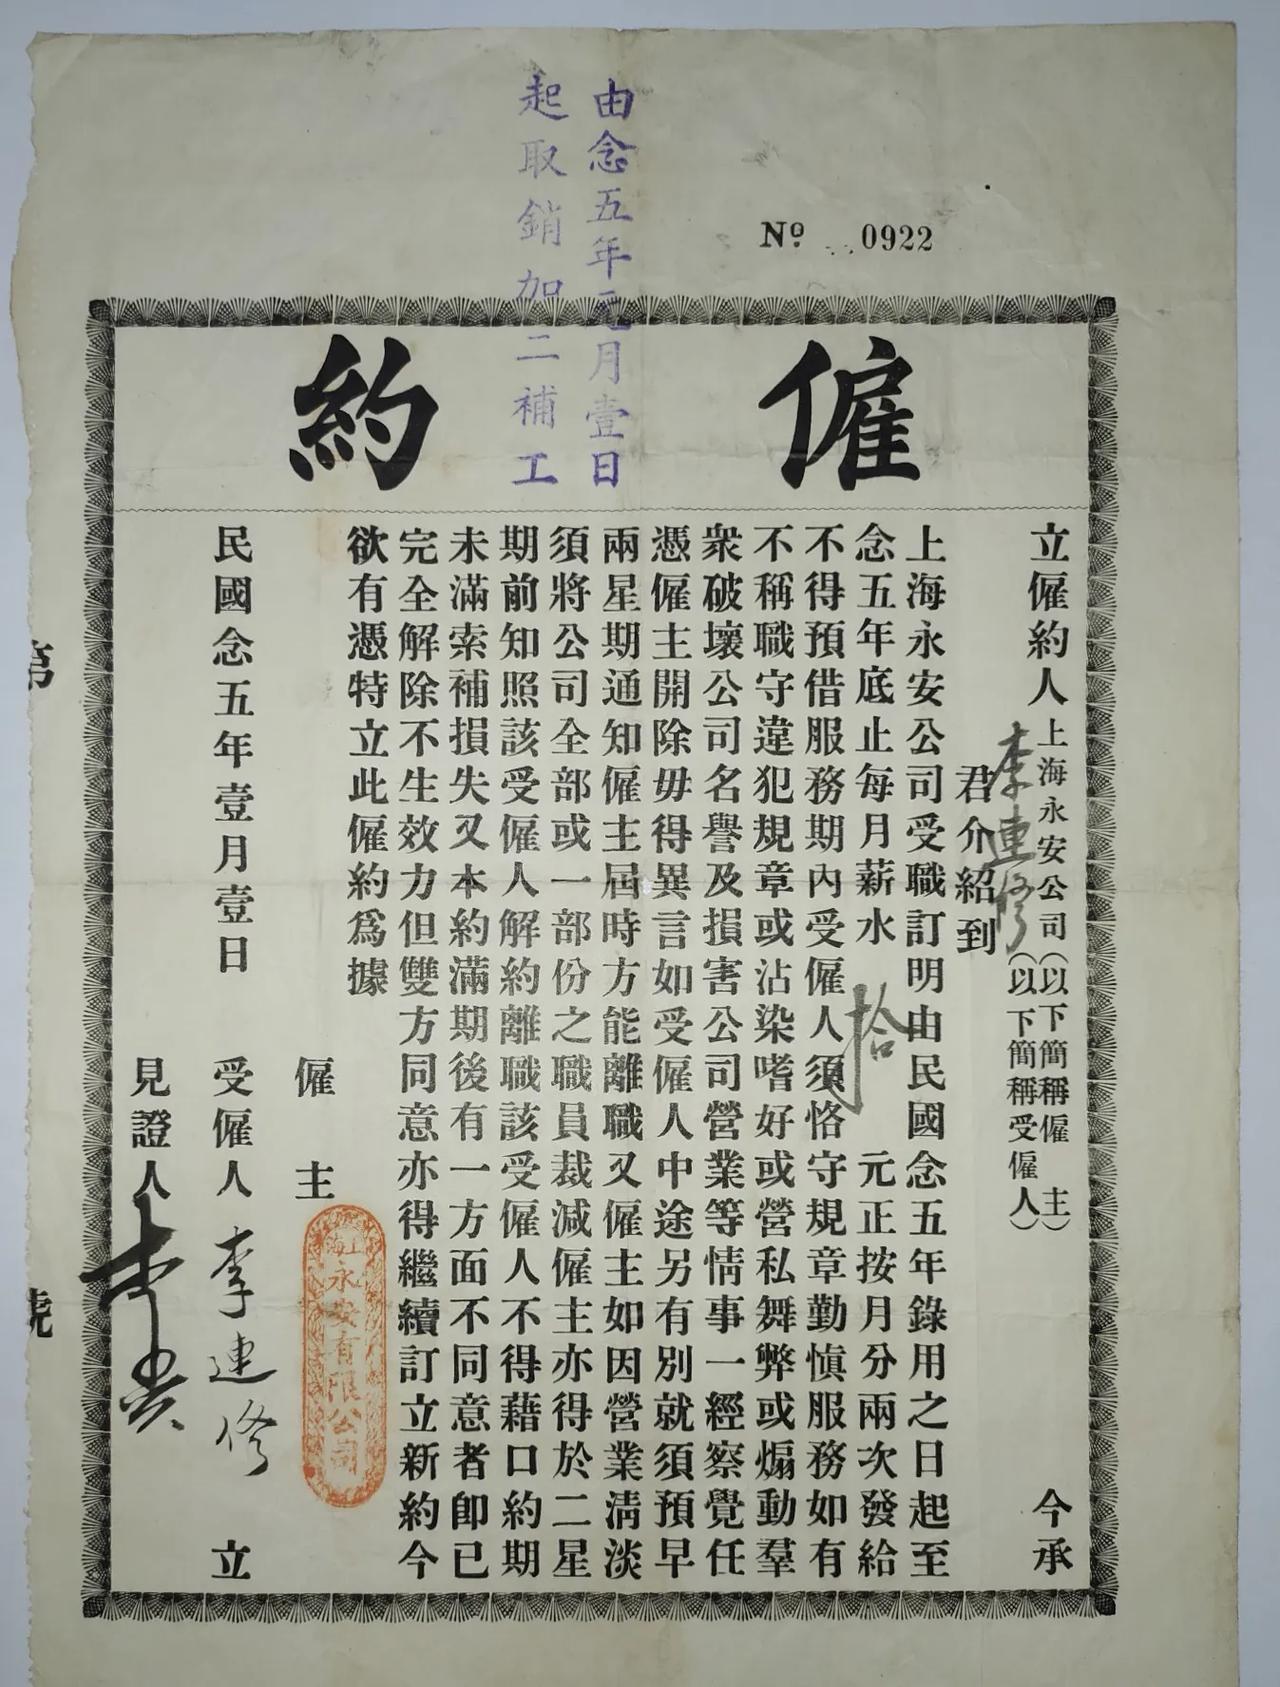 由念五年元月壹日
起取銷加二補工
Nº 0922
僱約
立僱約人上海永安公司（以下簡稱僱主）
李連修（以下簡稱受僱人）
今承
君介紹到
上海永安公司受職訂明由民國念五年錄用之日起至
念五年底止每月薪水拾元正按月分兩次發給
不得預借服務期內受僱人須恪守規章勤慎服務如有
不稱職守違犯規章或沾染嗜好或營私舞弊或煽動羣
衆破壞公司名譽及損害公司營業等情事一經察覺任
憑僱主開除毋得異言如受僱人中途另有別就須預早
兩星期通知僱主屆時方能離職又僱主如因營業淸淡
須將公司全部或一部份之職員裁減僱主亦得於二星
期前知照該受僱人解約離職該受僱人不得藉口約期
未滿索補損失又本約滿期後有一方面不同意者卽已
完全解除不生效力但雙方同意亦得繼續訂立新約今
欲有憑特立此僱約爲據
僱主
上海永安有限公司
民國念五年壹月壹日
受僱人李連修立
見證人
第
號